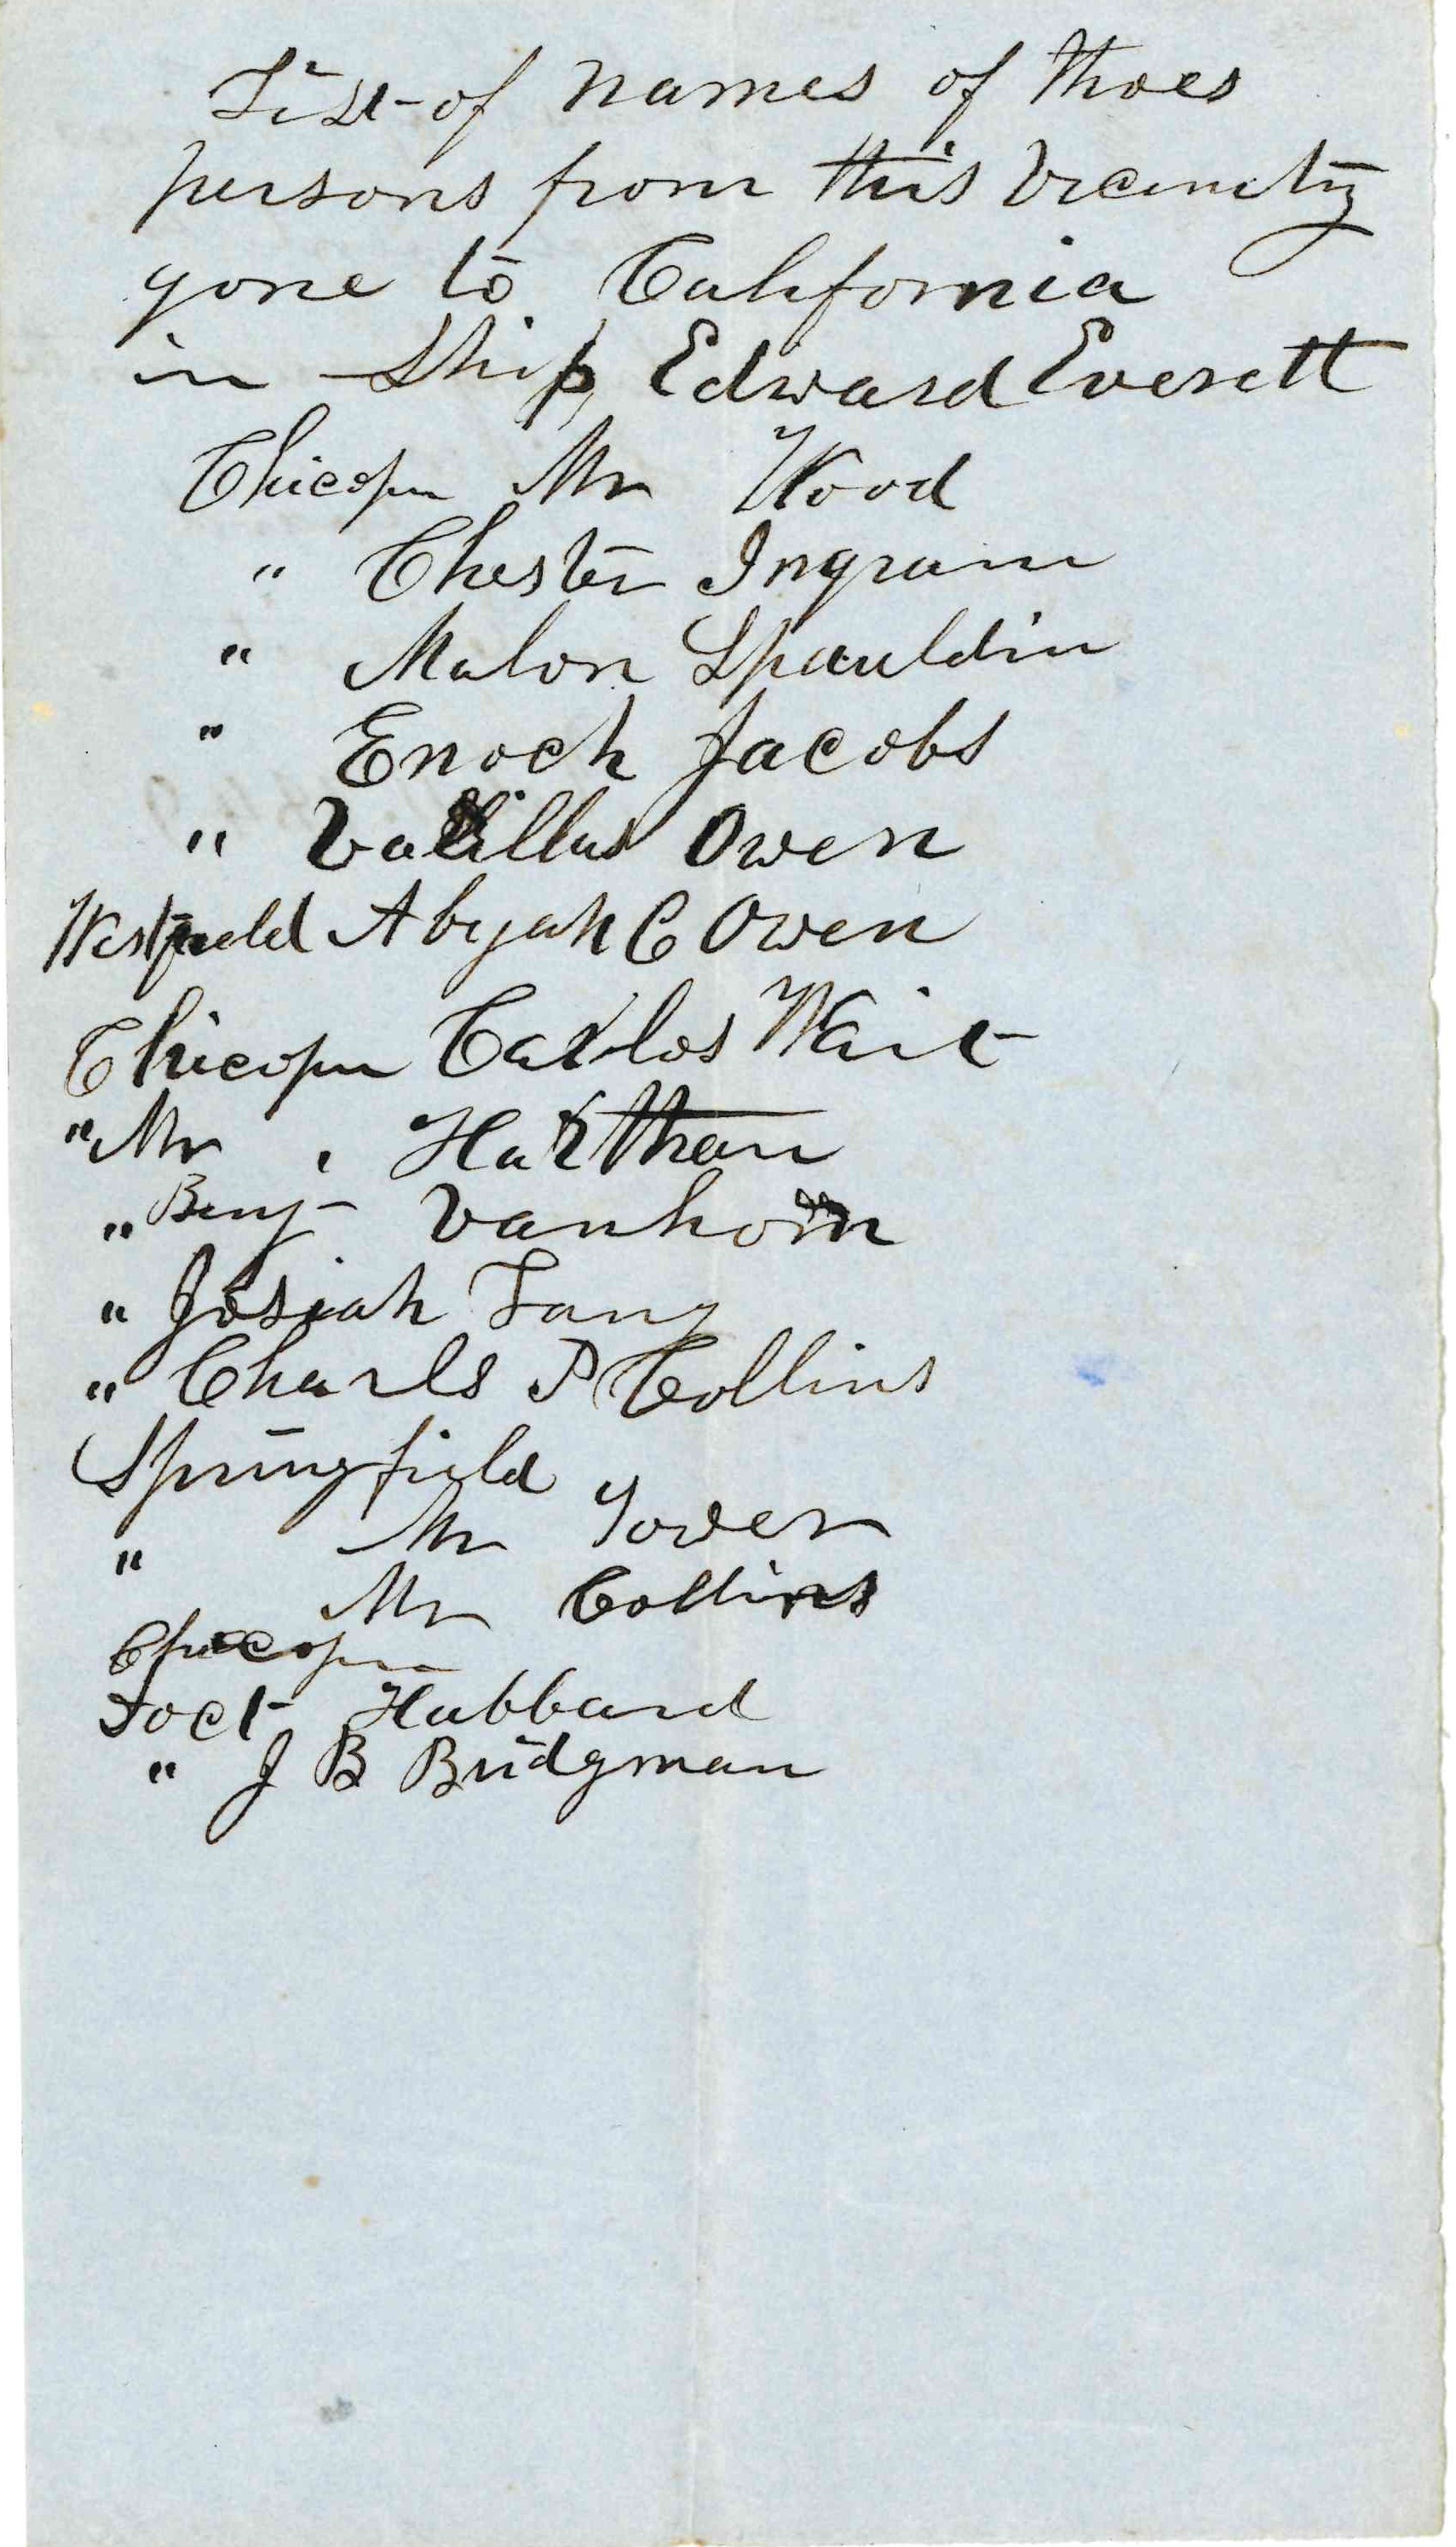 List of names of thoes
persons from this Vicinity
gone to California
in Ship Edward Everett
Chicopee Mr Wood
" Chester Ingram
" Malon Spauldin
" Enoch Jacobs
" Owen
Westfield Abijah C Owen
Chicopee Carlos Wait
" Mr. Harthan
" Benj Vanhorn
" Josiah Lang
" Charls P Collins
Springfield
" Mr Tower
Mr Collins
Chicopee
Doct Hubbard
" J B Bridgman